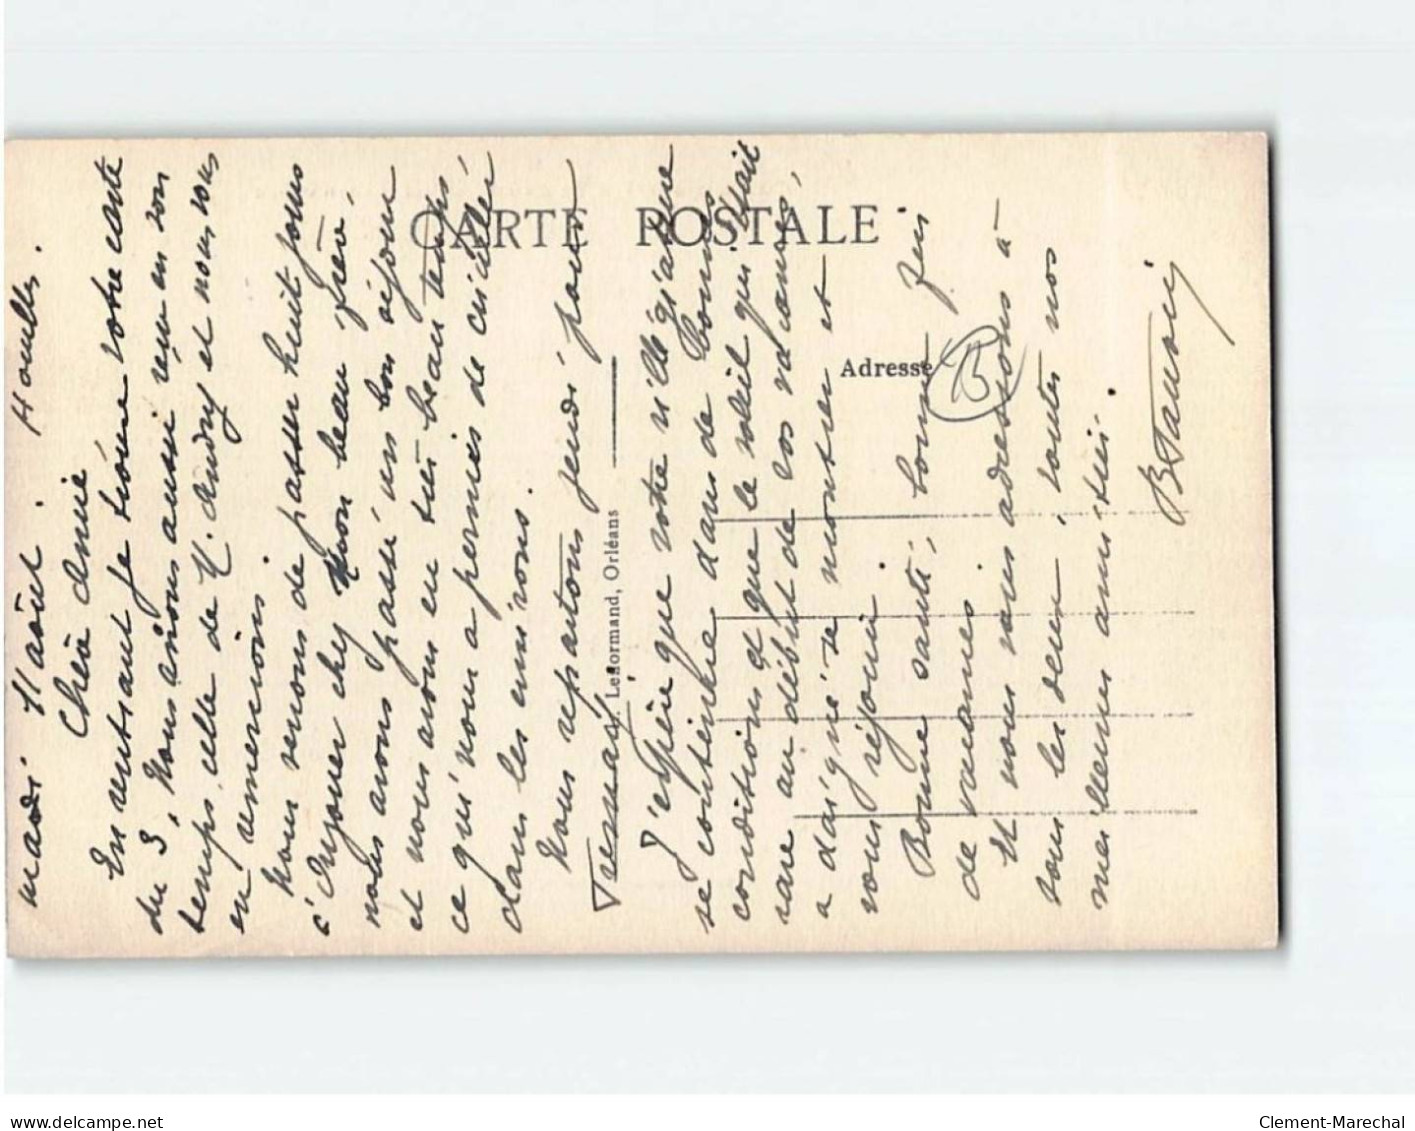 mardi 11 août. Houilles.
Chère Amie
En rentrant je trouve votre carte
du 3, nous avions aussi reçu en son
temps celle de M. Andry et nous vous
en remercions.
Nous venons de passer huit jours
à Angouer chez mon beau frère,
nous avons passé un bon séjour
et nous avons eu très beau temps,
ce qui nous a permis de circuler
dans les environs.
Nous repartons jeudi pour
J'espère que votre villégiature
se continue dans de bonnes
conditions et que le soleil qui était
rare au début de vos vacances,
a daigné se montrer et
vous réjouir.
Bonne santé, bonne fin
de vacances.
Et nous vous adressons à
tous les deux, toutes nos
meilleures amitiés.
CARTE POSTALE
Adresse
Lenormand, Orléans
Clement-Marechal